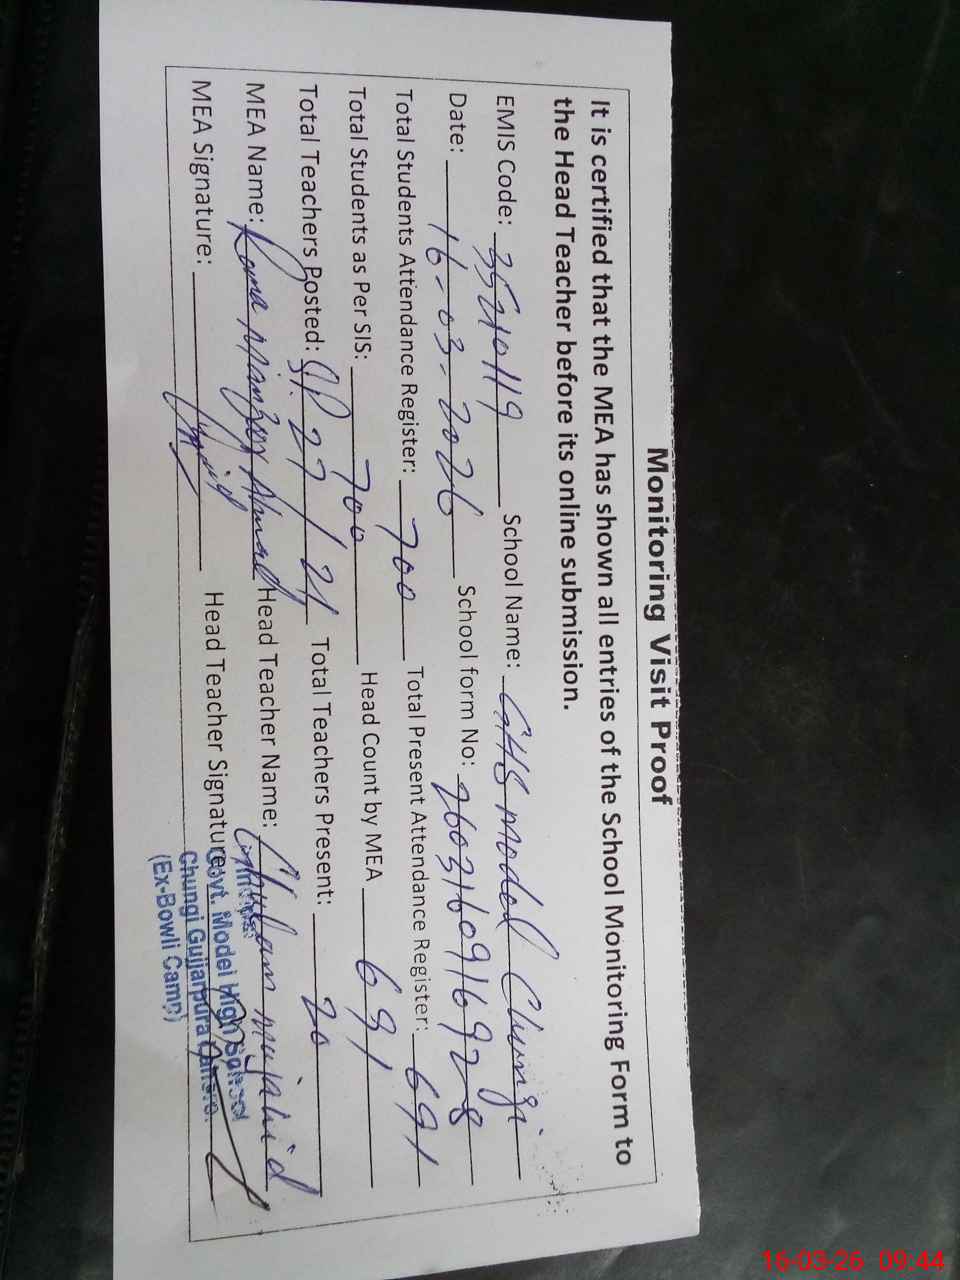 Monitoring Visit Proof
It is certified that the MEA has shown all entries of the School Monitoring Form to
the Head Teacher before its online submission.
EMIS Code: 35210119 School Name: GHS model Chungi
Date: 16-03-2026 School form No: 26031609169728
Total Students Attendance Register: 700 Total Present Attendance Register: 691
Total Students as Per SIS: 700 Head Count by MEA 691
Total Teachers Posted: 27/21 Total Teachers Present: 20
MEA Name: Rana Manzoor Ahmad Head Teacher Name: Ghulam mujahid
MEA Signature: Head Teacher Signature:
Principal
Govt. Model High School
Chungi Gujjarpura Lahore.
(Ex-Bowli Camp)
16-03-26 09:44